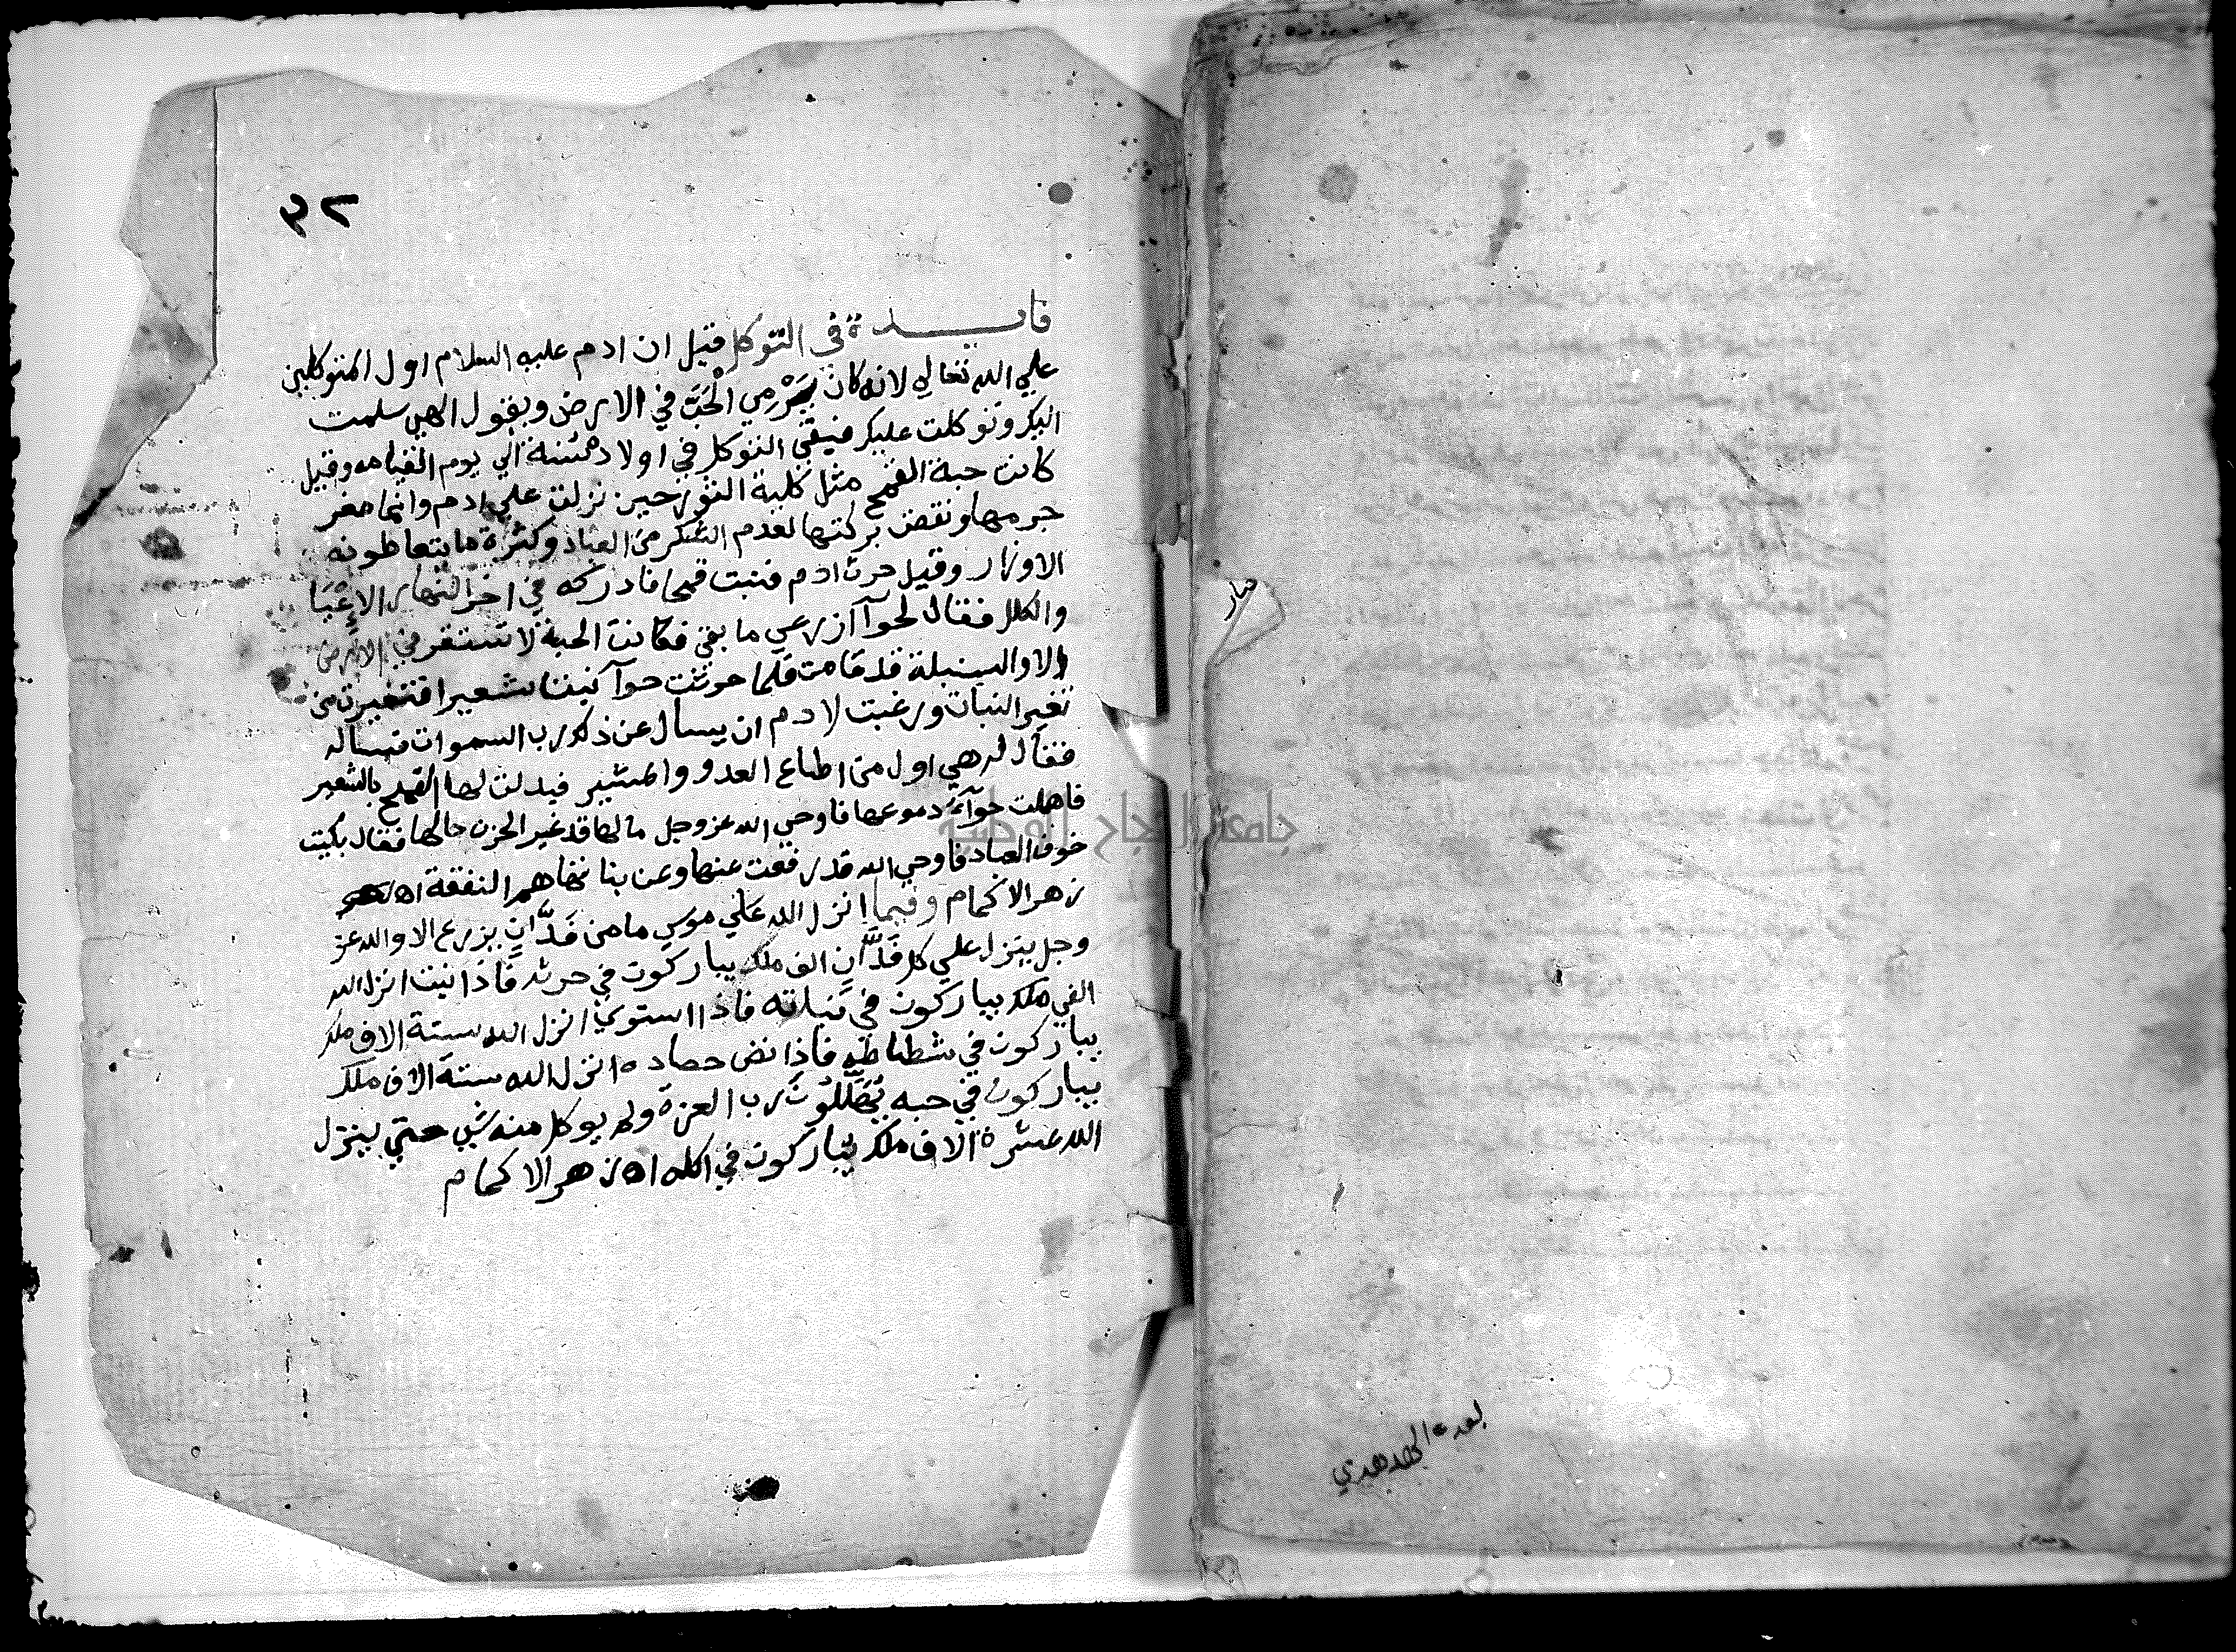 ٣٢
فايدة في التوكل قيل ان ادم عليه السلام اول المتوكلين
علي الله تعالي لانه كان يَرْمِي الْحَبَّ في الارض ويقول الهي سلمت
اليك وتوكلت عليك فبقي التوكل في اولاده الي يوم القيامه وقيل
كانت حبة القمح مثل كلية الثور حين نزلت علي ادم وانما صغر
جرمها ونقص بركتها لعدم الشكر من العباد وكثرة ما يتعاطونه
الاوزار وقيل حرث ادم فنبت قمحا فادركه في اخر النهار الاِعْيَا
والكلل فقال لحوآ ازرعي ما بقي فكانت الحبة لا تستقر في الارض
الا والسنبلة قد قامت فلما حرثت حوآ نبت شعيرا فتغيرت من
تغير النبات ورغبت لادم ان يسال عن ذلك رب السموات فساله
فقال له هي اول من اطاع العدو والمشير فبدلت لها القمح بالشعير
فاهلت حوآء دموعها فاوحي الله عز وجل ما لها قد غير الحزن حالها فقال بكيت
خوف العباد فاوحي الله قد رفعت عنها وعن بناتها هم النفقة اه
زهر الاكمام وفيما انزل الله علي موسي ما من فَدَّانٍ يزرع الا والله عز
وجل ينزل علي كل فَدَّانٍ الف ملك يباركون في حرثه فاذا نبت انزل الله
الفي ملك يباركون في نباته فاذا استوي انزل الله ستة الاف ملك
يباركون في فاذا حصاده انزل الله ستة الاف ملك
يباركون في حبه رب العزة ولم يوكل منه شي حتي ينزل
الله عشرة الاف ملك يباركون في اكله اه زهر الاكمام
جامعة النجاح الوطنية